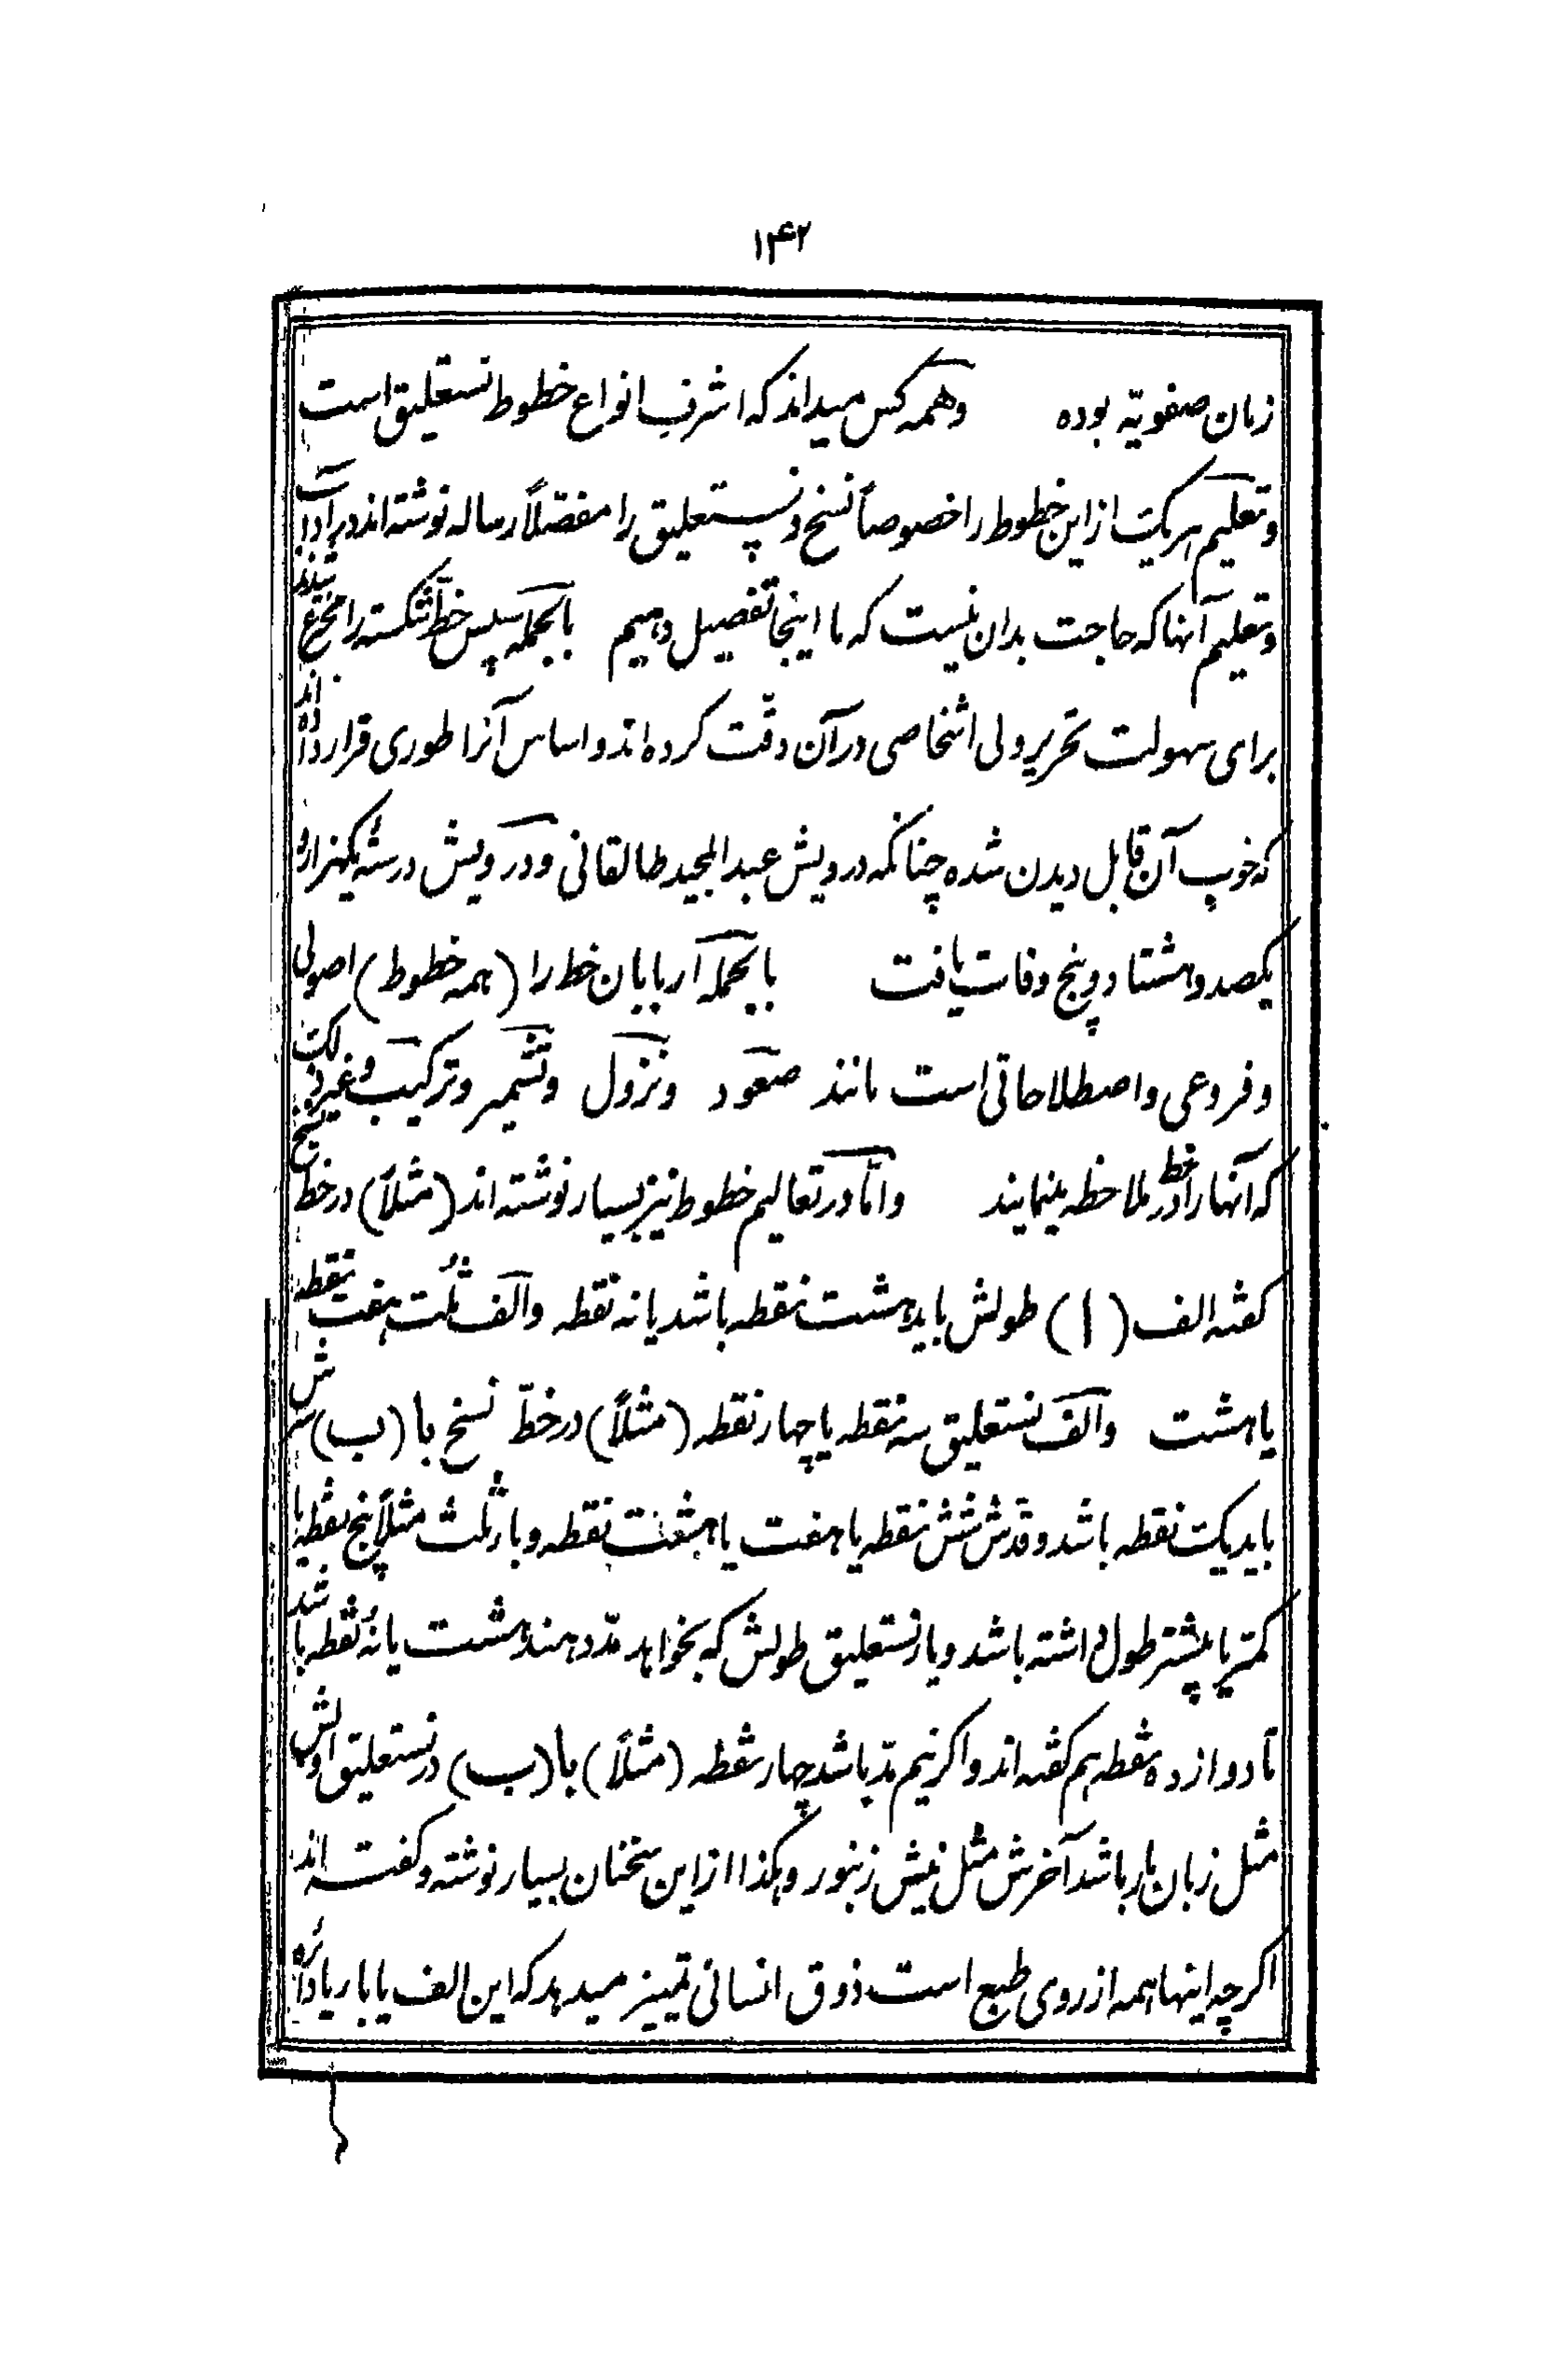 ۱۴۲
زمان صفویّه بوده وهمه کس میداند که اشرف انواع خطوط نستعلیق است
وتعلیم هریک از این خطوط را خصوصاً نسخ و نستعلیق را مفصّلاً رساله نوشته‌اند در آداب
وتعلیم آنها که حاجت بدان نیست که ما اینجا تفصیل دهیم بالجمله سپس خطّ شکسته را مخترع شدند
برای سهولت تحریر ولی اشخاصی در آن دقّت کرده‌اند و اساس آنرا طوری قرار داده اند
که خوب آن قابل دیدن شده چنانکه درویش عبدالمجید طالقانی و درویش در سنه یکهزار و
یکصد و هشتاد و پنج وفات یافت بالجمله اربابان خط را (همه خطوط) اصولی
و فروعی و اصطلاحاتی است مانند صعود ونزول وتشمیر وترکیب وغیر ذلک
که آنها را در خط ملاحظه مینمایند وامّا در تعالیم خطوط نیز بسیار نوشته‌اند (مثلاً) در خط نسخ
کفته الف (ا) طولش باید هشت نقطه باشد یا نه نقطه والف ثلث هفت نقطه
یا هشت والف نستعلیق سه نقطه یا چهار نقطه (مثلاً) در خطّ نسخ با (ب) سرش
باید یک نقطه باشد و قدش شش نقطه یا هفت یا هشت نقطه و باء ثلث مثلاً پنج نقطه یا
کمتر یا بیشتر طول داشته باشد و باء نستعلیق طولش که بخواهد مدّ دهند هشت یا نُه نقطه باشد
تا دوازده نقطه هم کفته‌اند و اکر نیم مدّ باشد چهار نقطه (مثلاً) با (ب) در نستعلیق اولش
مثل زبان مار باشد آخرش مثل نیش زنبور و هکذا از این سخنان بسیار نوشته و کفته‌اند
اکرچه اینها همه از روی طبع است ذوق انسانی تمییز میدهد که این الف یا با یا دائره